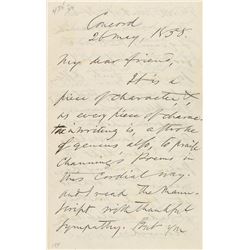 Concord
26 May, 1858.
My dear friend,
It is a
piece of character, &, as
as every piece of charac-
ter in writing is, a stroke
of genius also, to praise
Channing's Poems in
this Cordial way.
and I read the Manu-
script with thankful
sympathy. But you